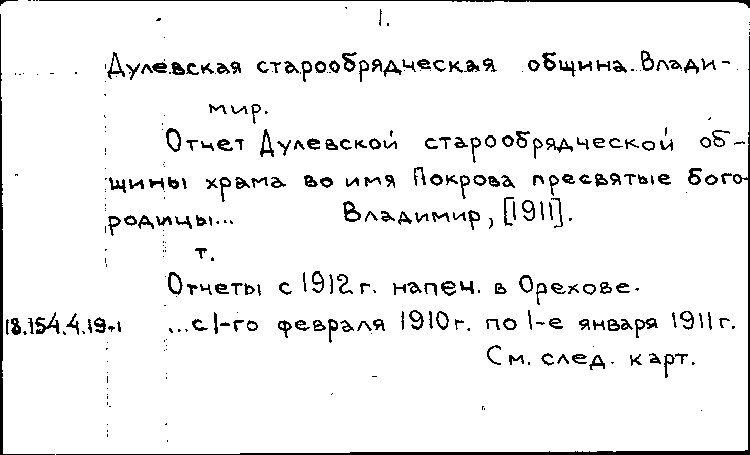 1.
Дулевская старообрядческая община. Влади-
мир.
Отчет Дулевской старообрядческой об-
щины храма во имя Покрова пресвятые бого-
родицы... Владимир, [1911].
т.
Отчеты с 1912 г. напеч. в Орехове.
18.154.4.19-1 ...с 1-го февраля 1910 г. по 1-е января 1911 г.
См. след. карт.